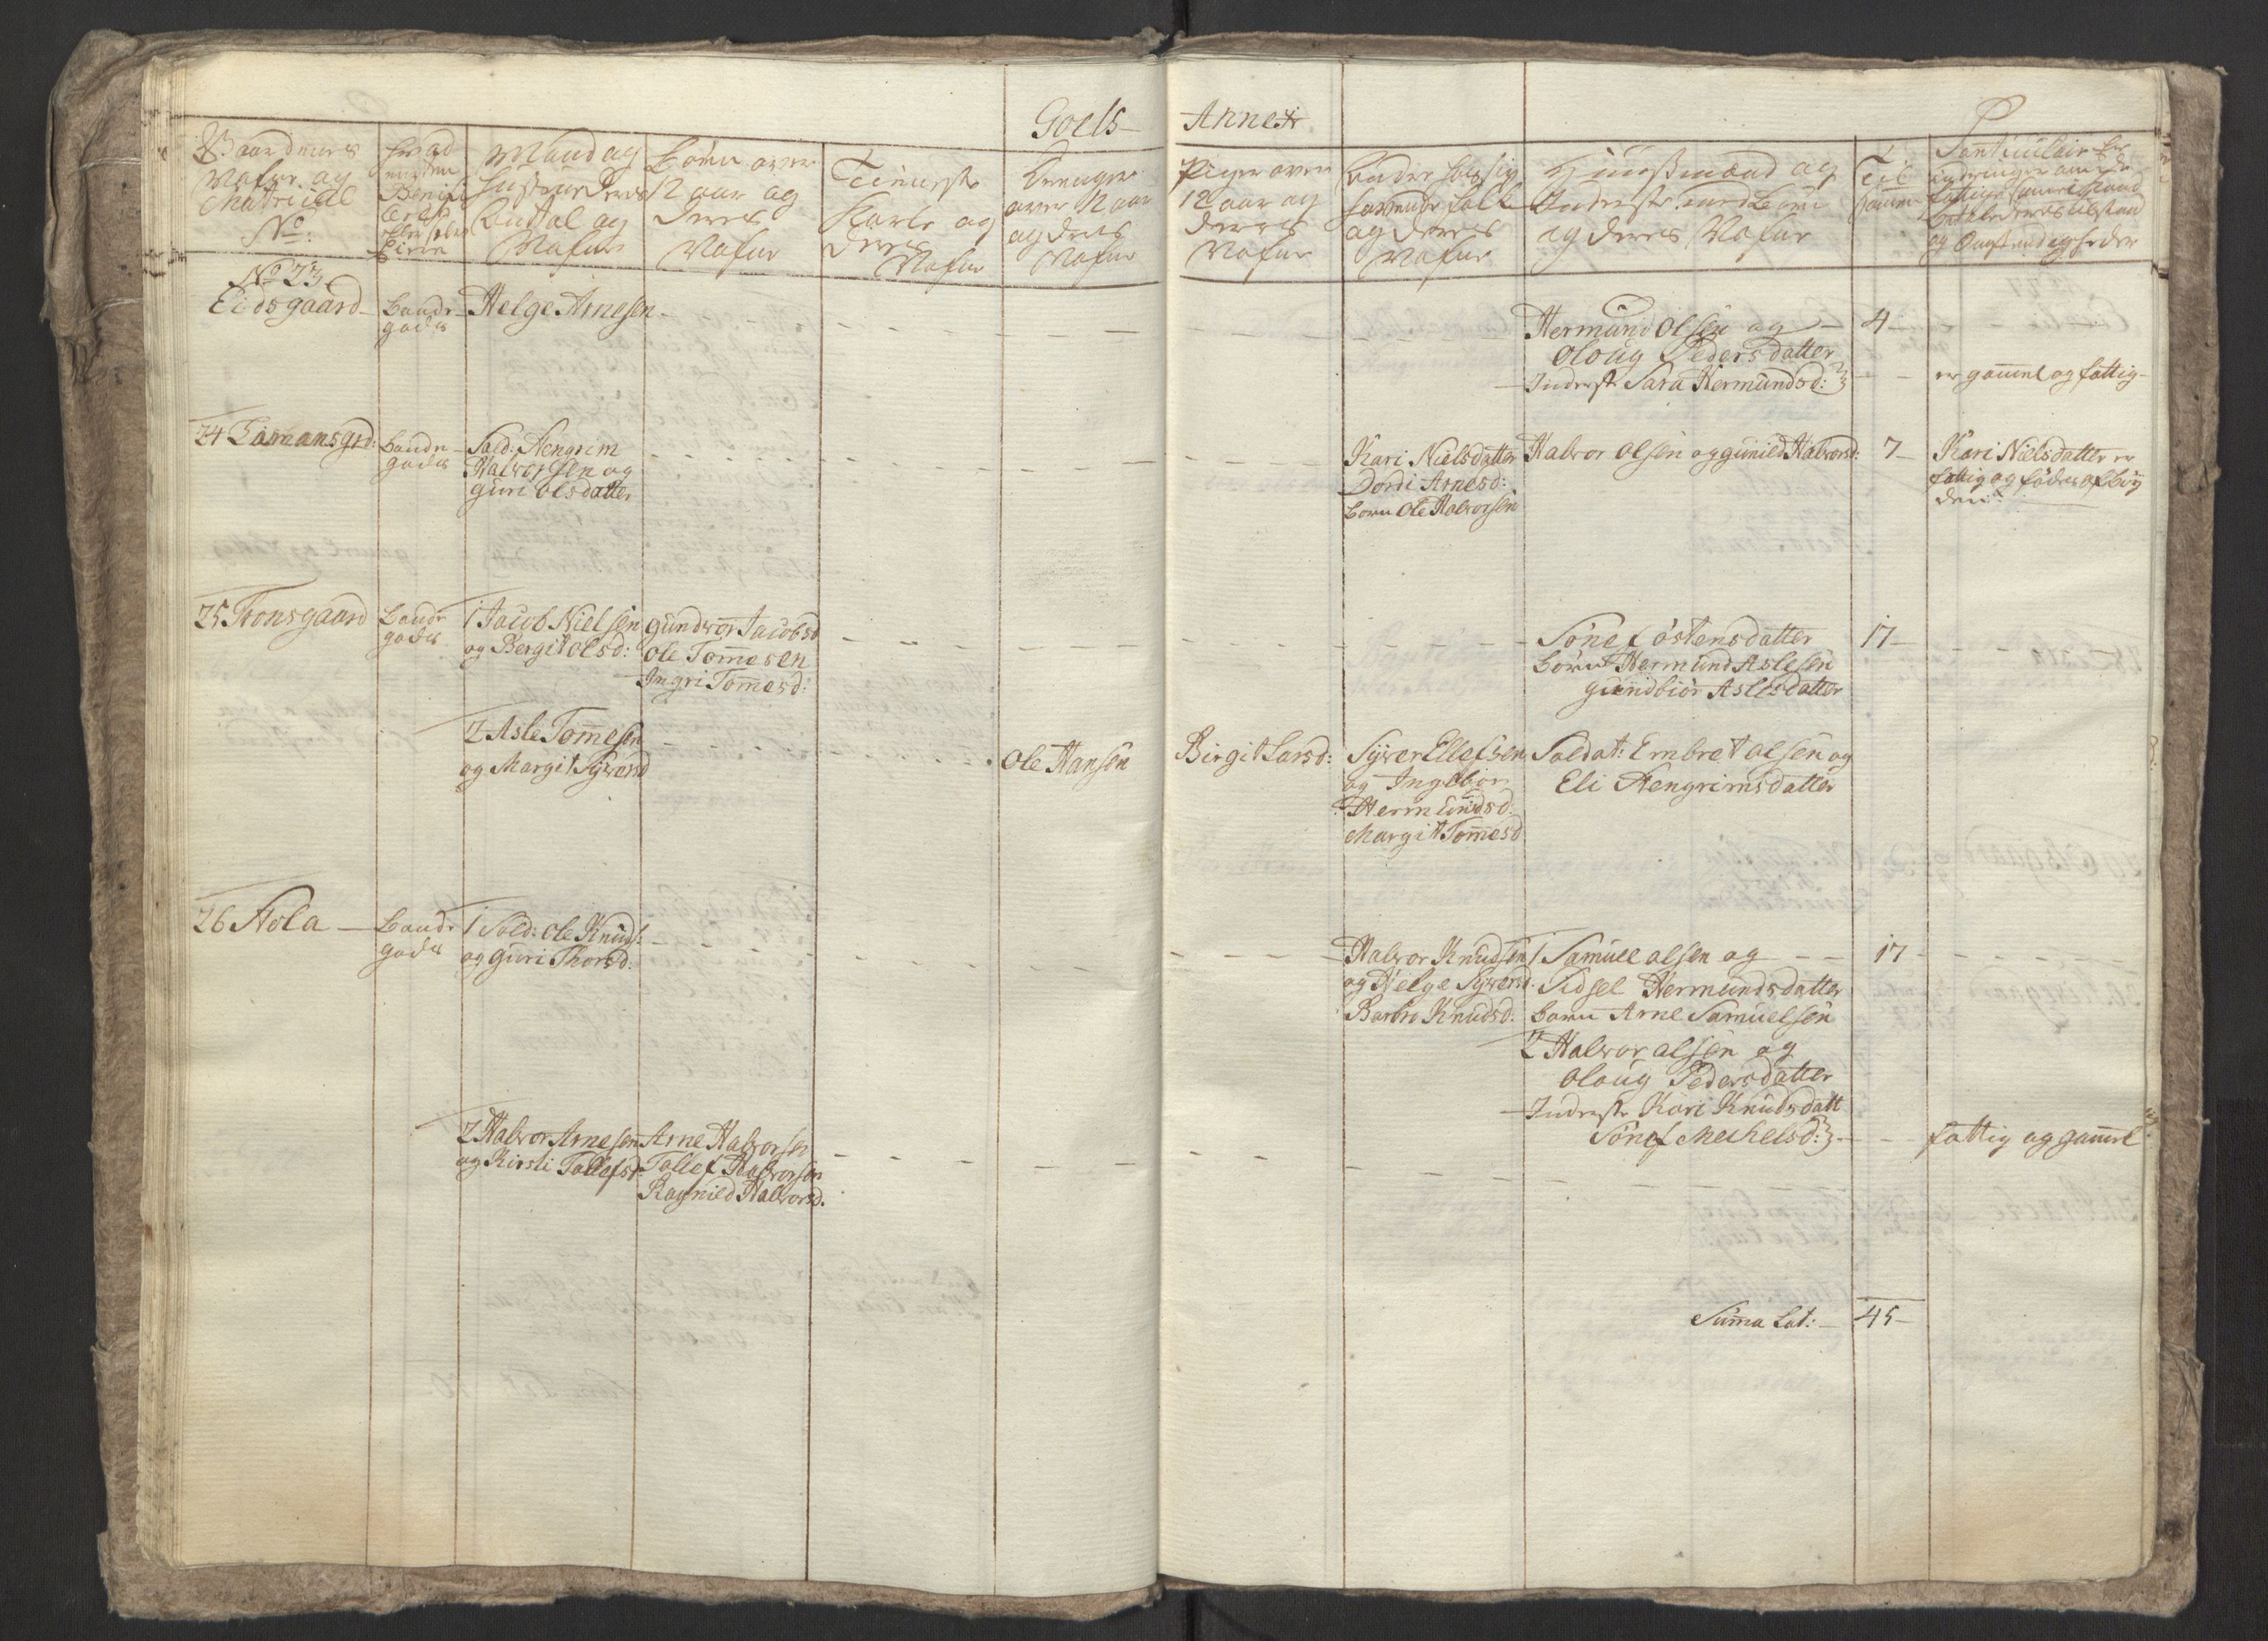 Goels Annex
Gaardenes
Nafne og
Matricul
No:
Mand og
Hustrue deres
Antal og
Nafne
Børn over
12 aar og
deres
Nafne
Tienneste
Karle og
deres
Nafne
Drenger
over 12 aar
og deres
Nafne
Piger over
12 aar og
deres
Nafne
Under holdig
havende folk
og deres
Nafne
Huusmænd og
Inderster med Børn
og deres Nafne
Til
sammen
No 23
Eidsgaard
Bonde
gods
Helge Arnesen
Hermund Olsen og
Oloug Pedersdatter
Inderst Sara Hermundsd:
4
er gammel og fattig
24
Bonde
gods
Sold: Stengrim
Halvorsen og
Guri Olsdatter
Kari Nielsdatter
Dordi Arnesd:
Børn Ole Halvorsen
Halvor Olsen og Gunild Halvorsd:
7
Kari Nielsdatter er
fattig og fødes af Byg
den
25 Tronsgaard
Bonde
gods
1 Jacob Nielsen
og Bergit Olsd:
Gundvor Jacobsd
Ole Tommesen
Ingri Tommesd:
Sønef Østensdatter
Børn Hermund Aslesen
Gundbiør Aslesdatter
17
2 Asle Tommesen
og Margit Syversd
Ole Hansen
Birgit Larsd:
Syver Ellefsen
og Ingebior
Hermundsd:
Margit Tommesd
Soldat: Embret Olsen og
Eli Stengrimsdatter
26 Stola
Bonde
gods
1 Sold: Ole Knuds:
og Guri Thorsd:
Halvor Knudsen
og Helge Syversd.
Barbro Knudsd:
1 Samuel Olsen og
Sidsel Hermundsdatter
Børn Arne Samuelsen
2 Halvor Olsen og
Oloug Pedersdatter
Inderste Kari Knudsdatt
Sønef Mechelsd:
17
fattig og gammel
2 Halvor Arnesen
og Kirsti Tollefsd:
Arne Halvorsen
Tollef Halvorsen
Ragnild Halvorsd.
Summa Lat: 45